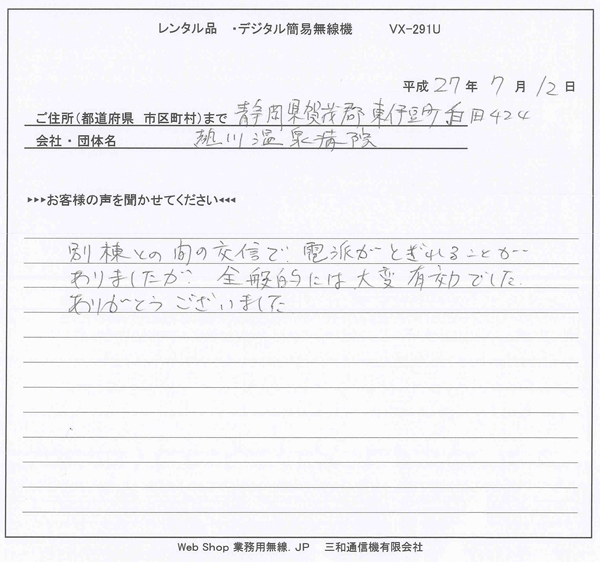 レンタル品 ・デジタル簡易無線機 VX-291U
平成 27 年 7 月 12 日
ご住所(都道府県 市区町村)まで 静岡県賀茂郡東伊豆町白田424
会社・団体名 熱川温泉病院
▶▶▶お客様の声を聞かせてください◀◀◀
別棟との間の交信で、電波がとぎれることが
ありましたが、全般的には大変有効でした。
ありがとうございました
Web Shop 業務用無線.JP 三和通信機有限会社